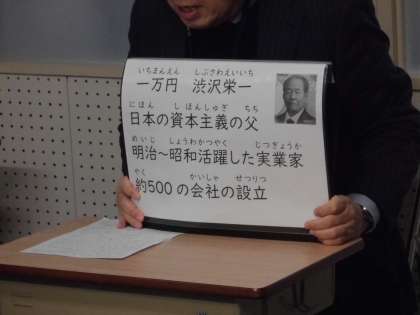 いちまんえん しぶさわえいいち
一万円 渋沢栄一
にほん しほんしゅぎ ちち
日本の資本主義の父
めいじ しょうわかつやく じつぎょうか
明治~昭和活躍した実業家
やく かいしゃ せつりつ
約500の会社の設立